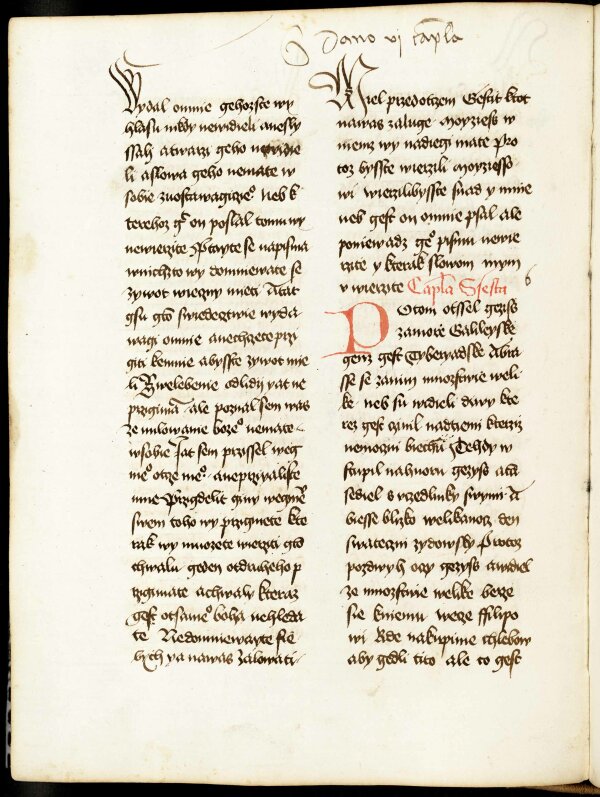 Dano vj capla
Wydal omnie gehozste wy
hlasu nikdy newidieli anesly
ssali atwarzi geho newidie
li aslowa geho nemate w
sobie zuostawagicze⁹ neb k
terehoz gt on poslal tomu wy
newierzite Ptayte se napisma
wnichzto wy domniewate se
zywot wieczny mieti Atat
gsu gto swiedecztwie wyda
wagi omnie anechczete przi
giti kemnie abysste zywot mie
li Zwelebenie odlidij yat ne
przigima ale poznal sem was
ze milowanie boze⁹ nemate
wsobie Jat sem przissel weg
me⁹ otcze me⁹ aneprziyaliste
mne Przigdelit giny wegme
swem toho wy przigmete kte
rak wy muozete wierziti gto
chwalu geden otdrucheho p
rzigimate achwaly kteraz
gest otsame⁹ boha nehleda
te Nedomniewayte sie
bych ya nawas zalowati
Miel przedotczem Gestit ktot
nawas zaluge moyziess w
niemz wy nadiegi mate Pro
toz byste wierzili moyziesso
wi wierzilibysste snad y mnie
neb gest on omnie psal ale
poniewadz ge⁹ pismu newie
rzite y kterak slowom mym
vwierzite Capla Siesta 6
Potom otssel gezis
zamorze Galileyske
genz gest Tyberyadske Abra
sse se zanim mnozstwie weli
ke neb su widieli diwy kte
rez gest czinil nadtiemi kterziz
nemoczni biechu Tehdy w
stupil nahoru gezyss ata
sediel s vczedlniky swymi A
biesse blizko welikanocz den
swateczni zydowsky Protoz
pozdwyh oczy gezyss awidiel
ze mnozstwie welike berze
sie kniemu wecze ffilipo
wi Kde nakupime chlebow
aby gedli tito ale to gest